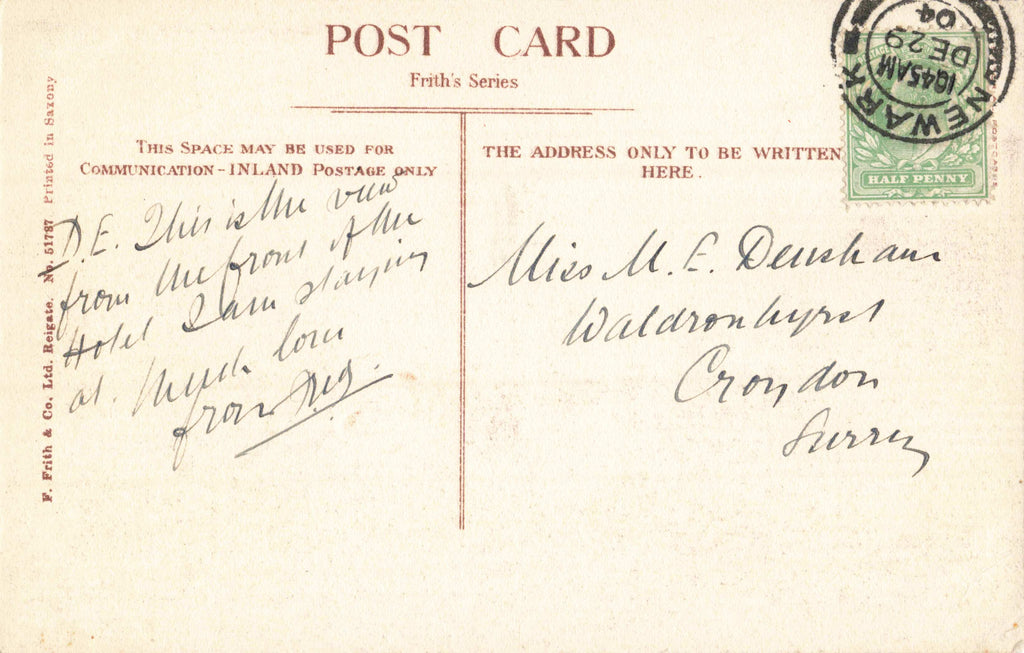 POST CARD
Frith's Series
THIS SPACE MAY BE USED FOR
COMMUNICATION - INLAND POSTAGE ONLY
THE ADDRESS ONLY TO BE WRITTEN
HERE.
D.E. This is the view
from the front of the
Hotel I am staying
at. Much love
from Reg.
Miss M. E. Densham
Waldronhyrst
Croydon
Surrey
F. Frith & Co. Ltd. Reigate. No. 51787 Printed in Saxony
NEWARK
1045AM
DE 29
04
HALF PENNY